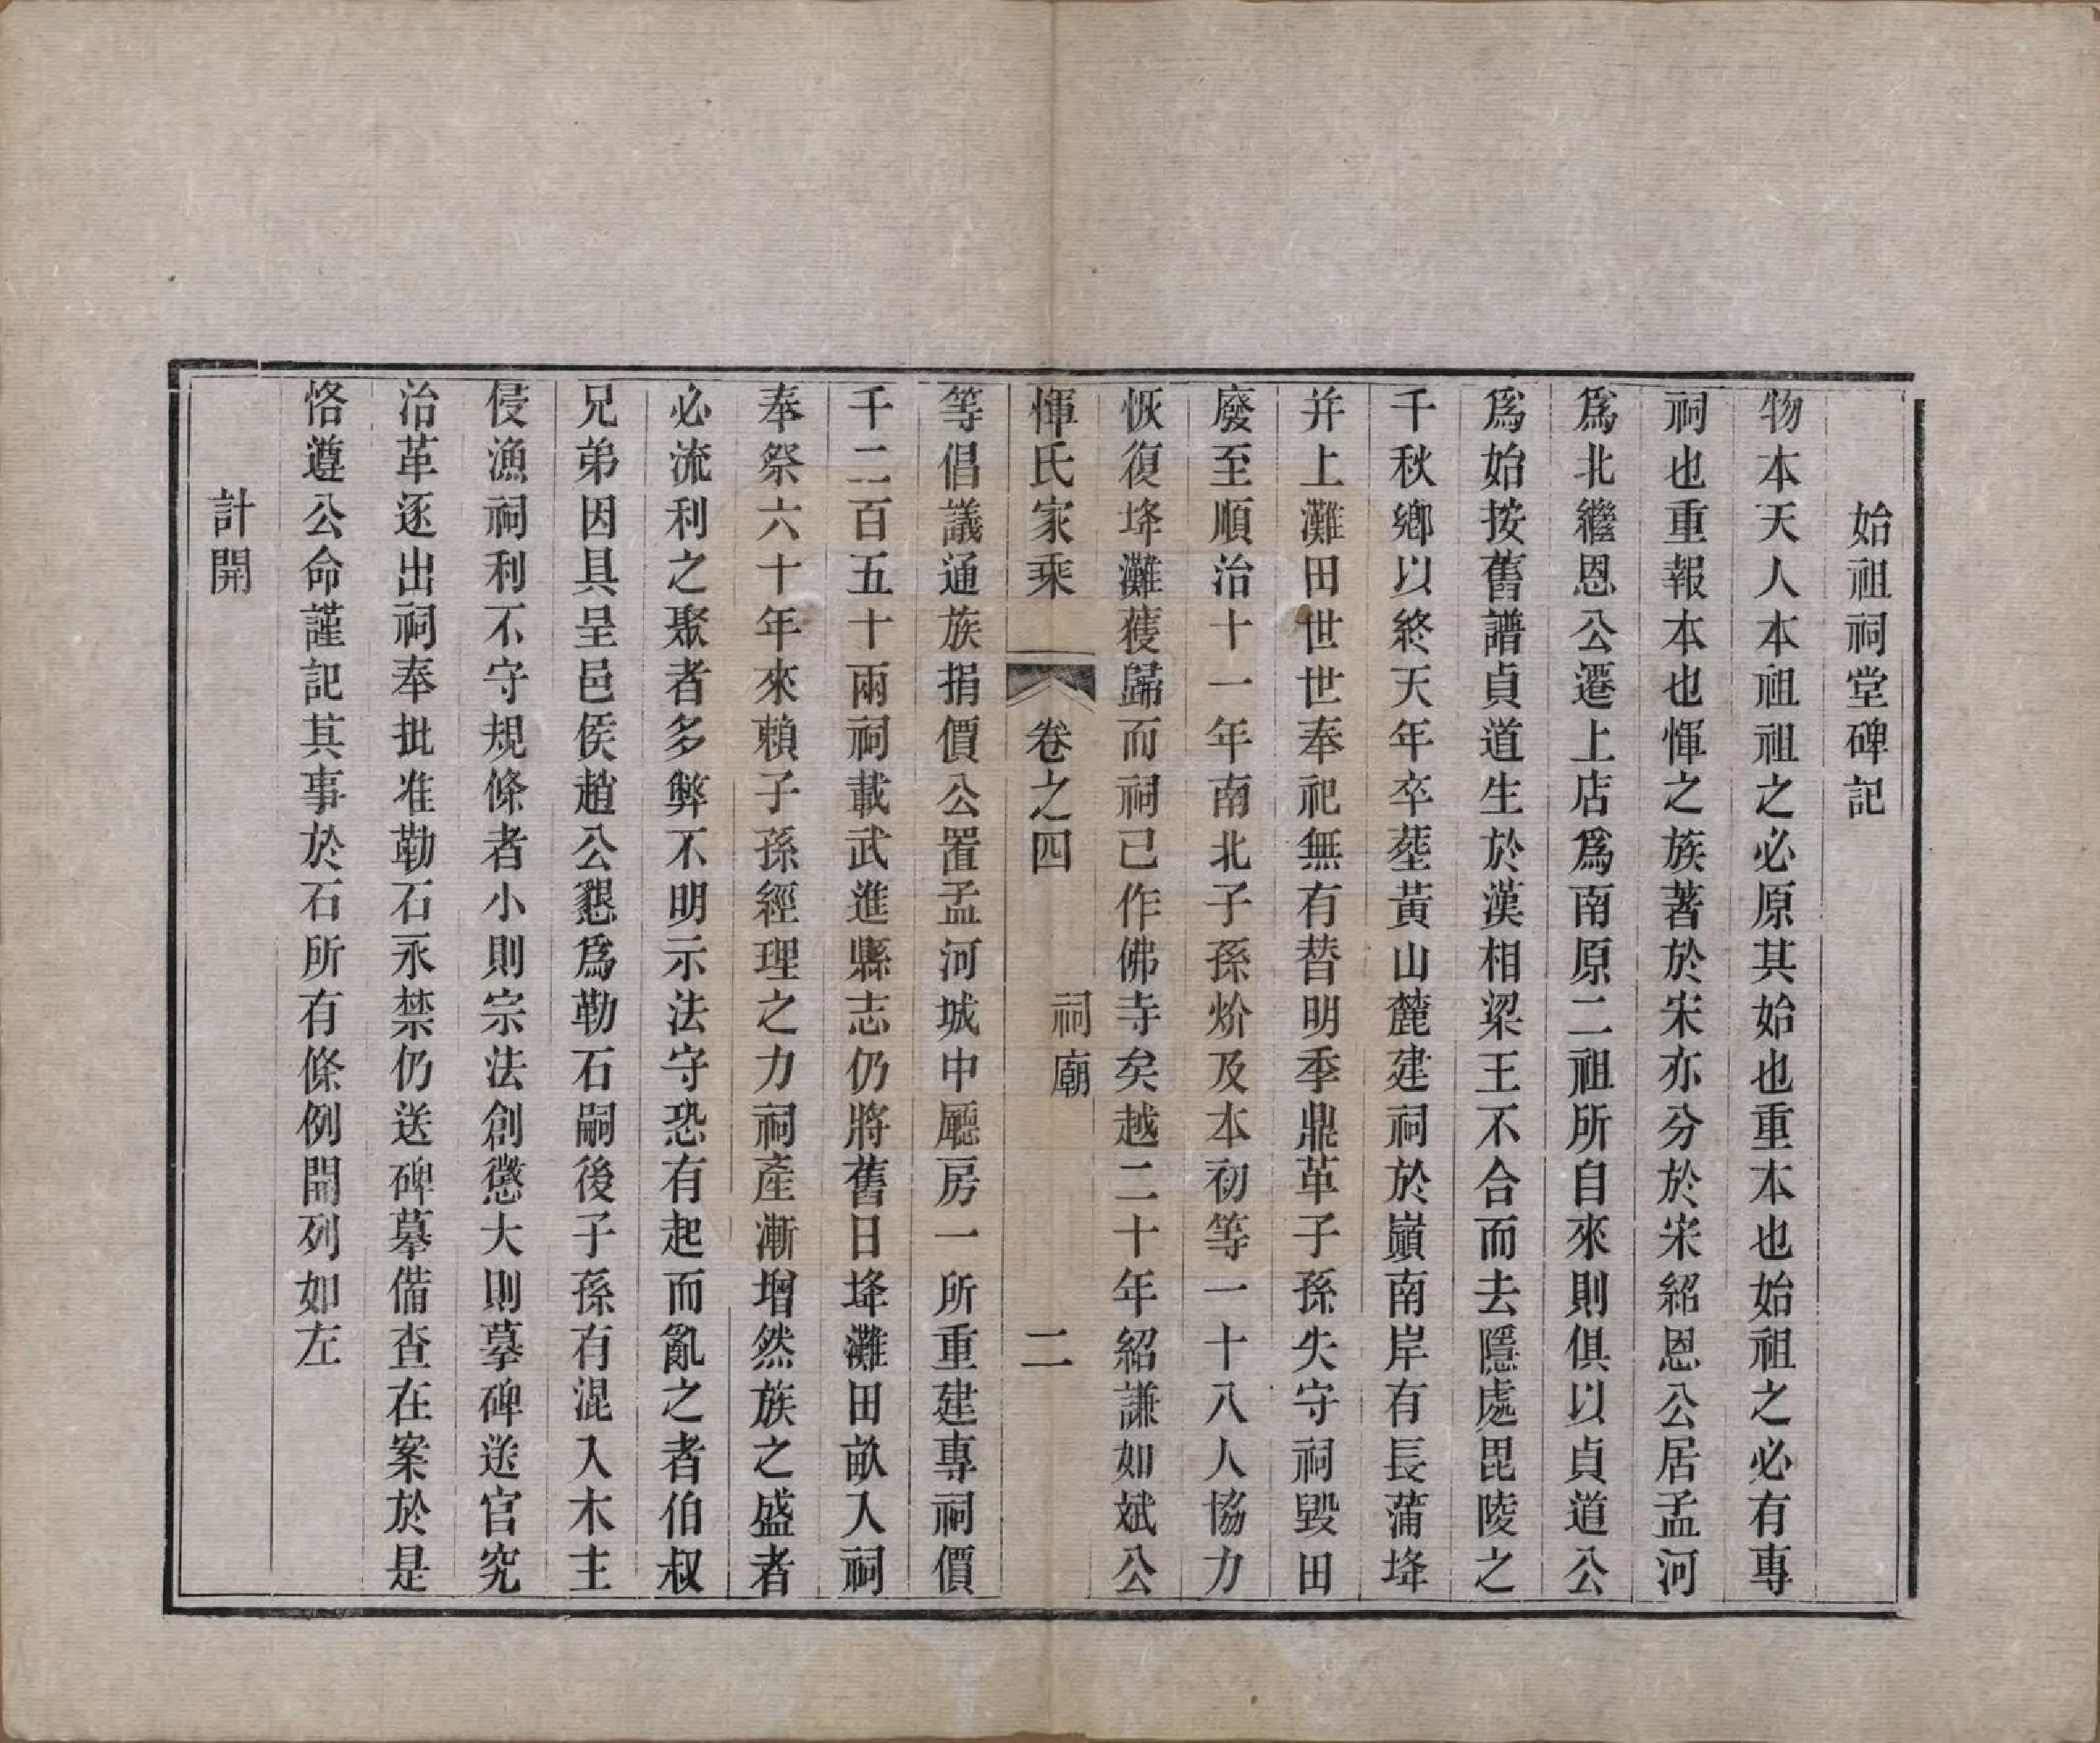 始祖祠堂碑記
物本天人本祖祖之必原其始也重本也始祖之必有專
祠也重報本也惲之族著於宋亦分於宋紹恩公居孟河
爲北繼恩公遷上店爲南原二祖所自來則俱以貞道公
爲始按舊譜貞道生於漢相梁王不合而去隱處毘陵之
千秋鄉以終天年卒塟黃山麓建祠於巔南岸有長蒲埄
并上灘田世世奉祀無有替明季鼎革子孫失守祠毀田
廢至順治十一年南北子孫炌及本初等一十八人協力
恢復埄灘蒦歸而祠已作佛寺矣越二十年紹謙如斌公
惲氏家乘 卷之四 祠廟 二
等倡議通族捐價公置孟河城中廳房一所重建專祠價
千二百五十兩祠載武進縣志仍將舊日埄灘田畝入祠
奉祭六十年來賴子孫經理之力祠產漸增然族之盛者
必流利之聚者多弊不明示法守恐有起而亂之者伯叔
兄弟因具呈邑侯趙公懇爲勒石嗣後子孫有混入木主
侵漁祠利不守規條者小則宗法創懲大則摹碑送官究
治革逐出祠奉批准勒石永禁仍送碑摹備查在案於是
恪遵公命謹記其事於石所有條例開列如左
計開